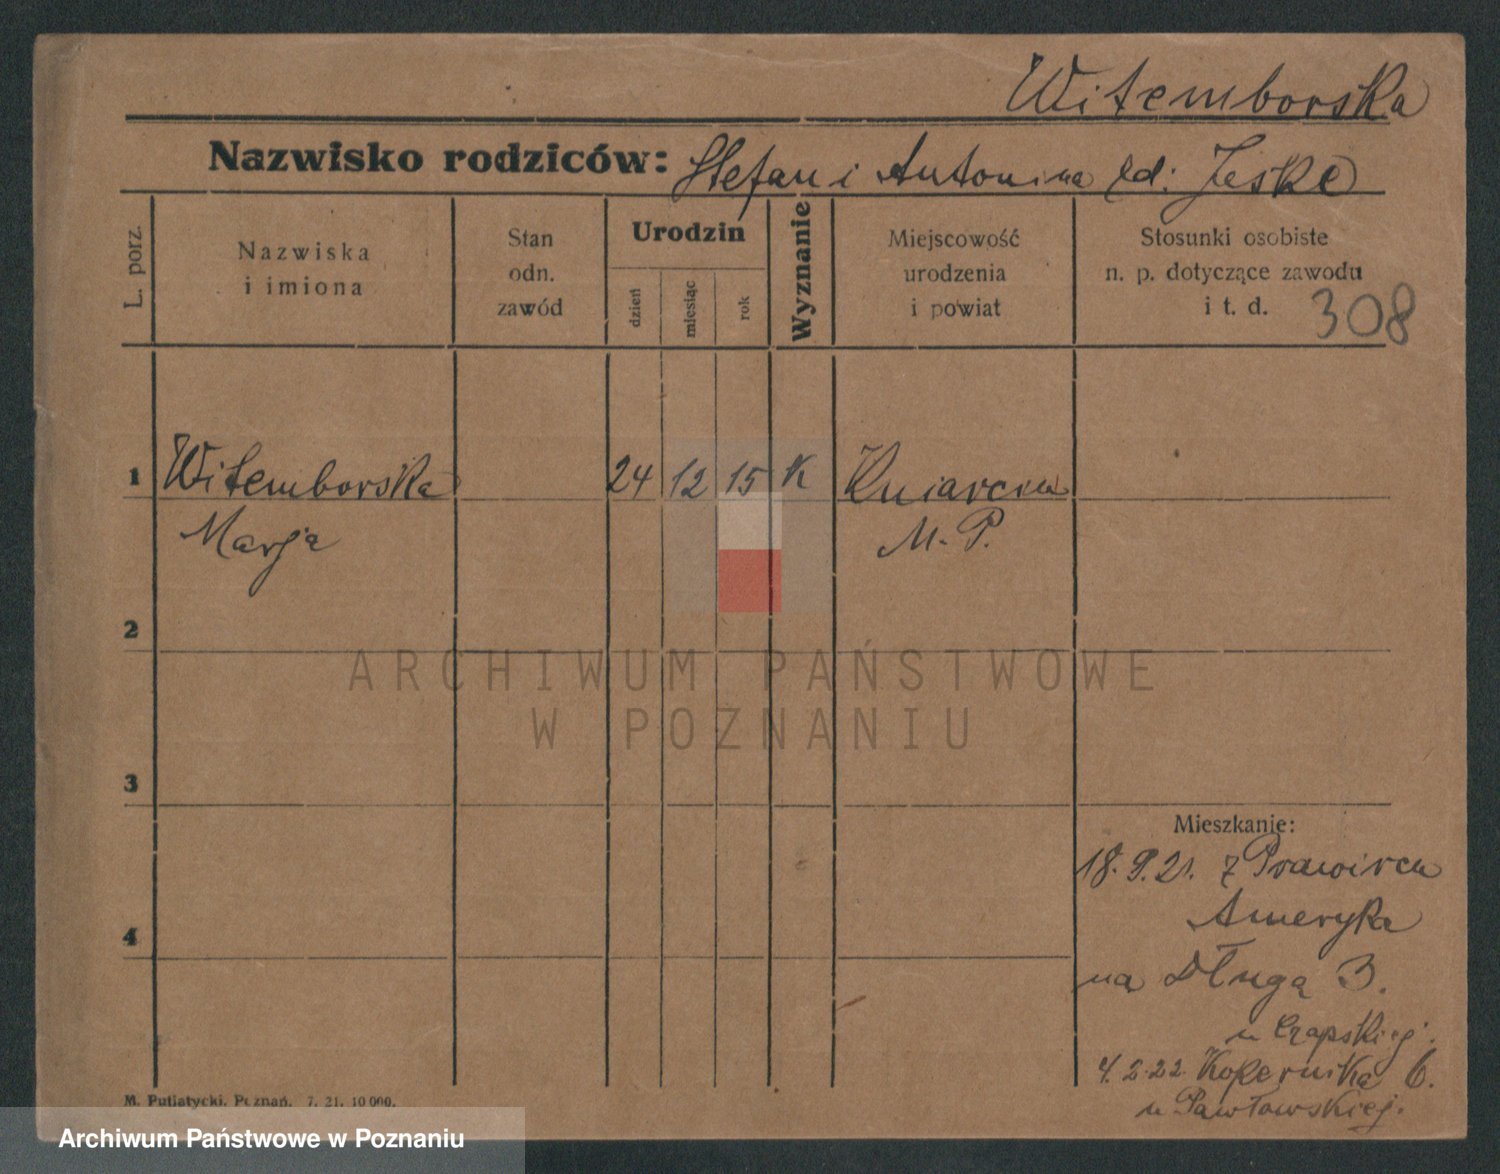 Witemborska
Nazwisko rodziców: Stefan i Antonina zd: Jeske
L. porz.
Nazwiska
i imiona
Stan
odn.
zawód
Urodzin
dzień
miesiąc
rok
Wyznanie
Miejscowość
urodzenia
i powiat
Stosunki osobiste
n. p. dotyczące zawodu
i t. d.
308
1 Witemborska 24 12 15 K
Marja M. P.
2
3
4
Mieszkanie:
18. 9. 21. z
Ameryka
na Długą 3.
u Czapskiej.
4. 2. 22. Kopernika 6.
u Pawłowskiej.
M. Putiatycki. Poznań. 7. 21. 10 000.
ARCHIWUM PAŃSTWOWE
W POZNANIU
Archiwum Państwowe w Poznaniu